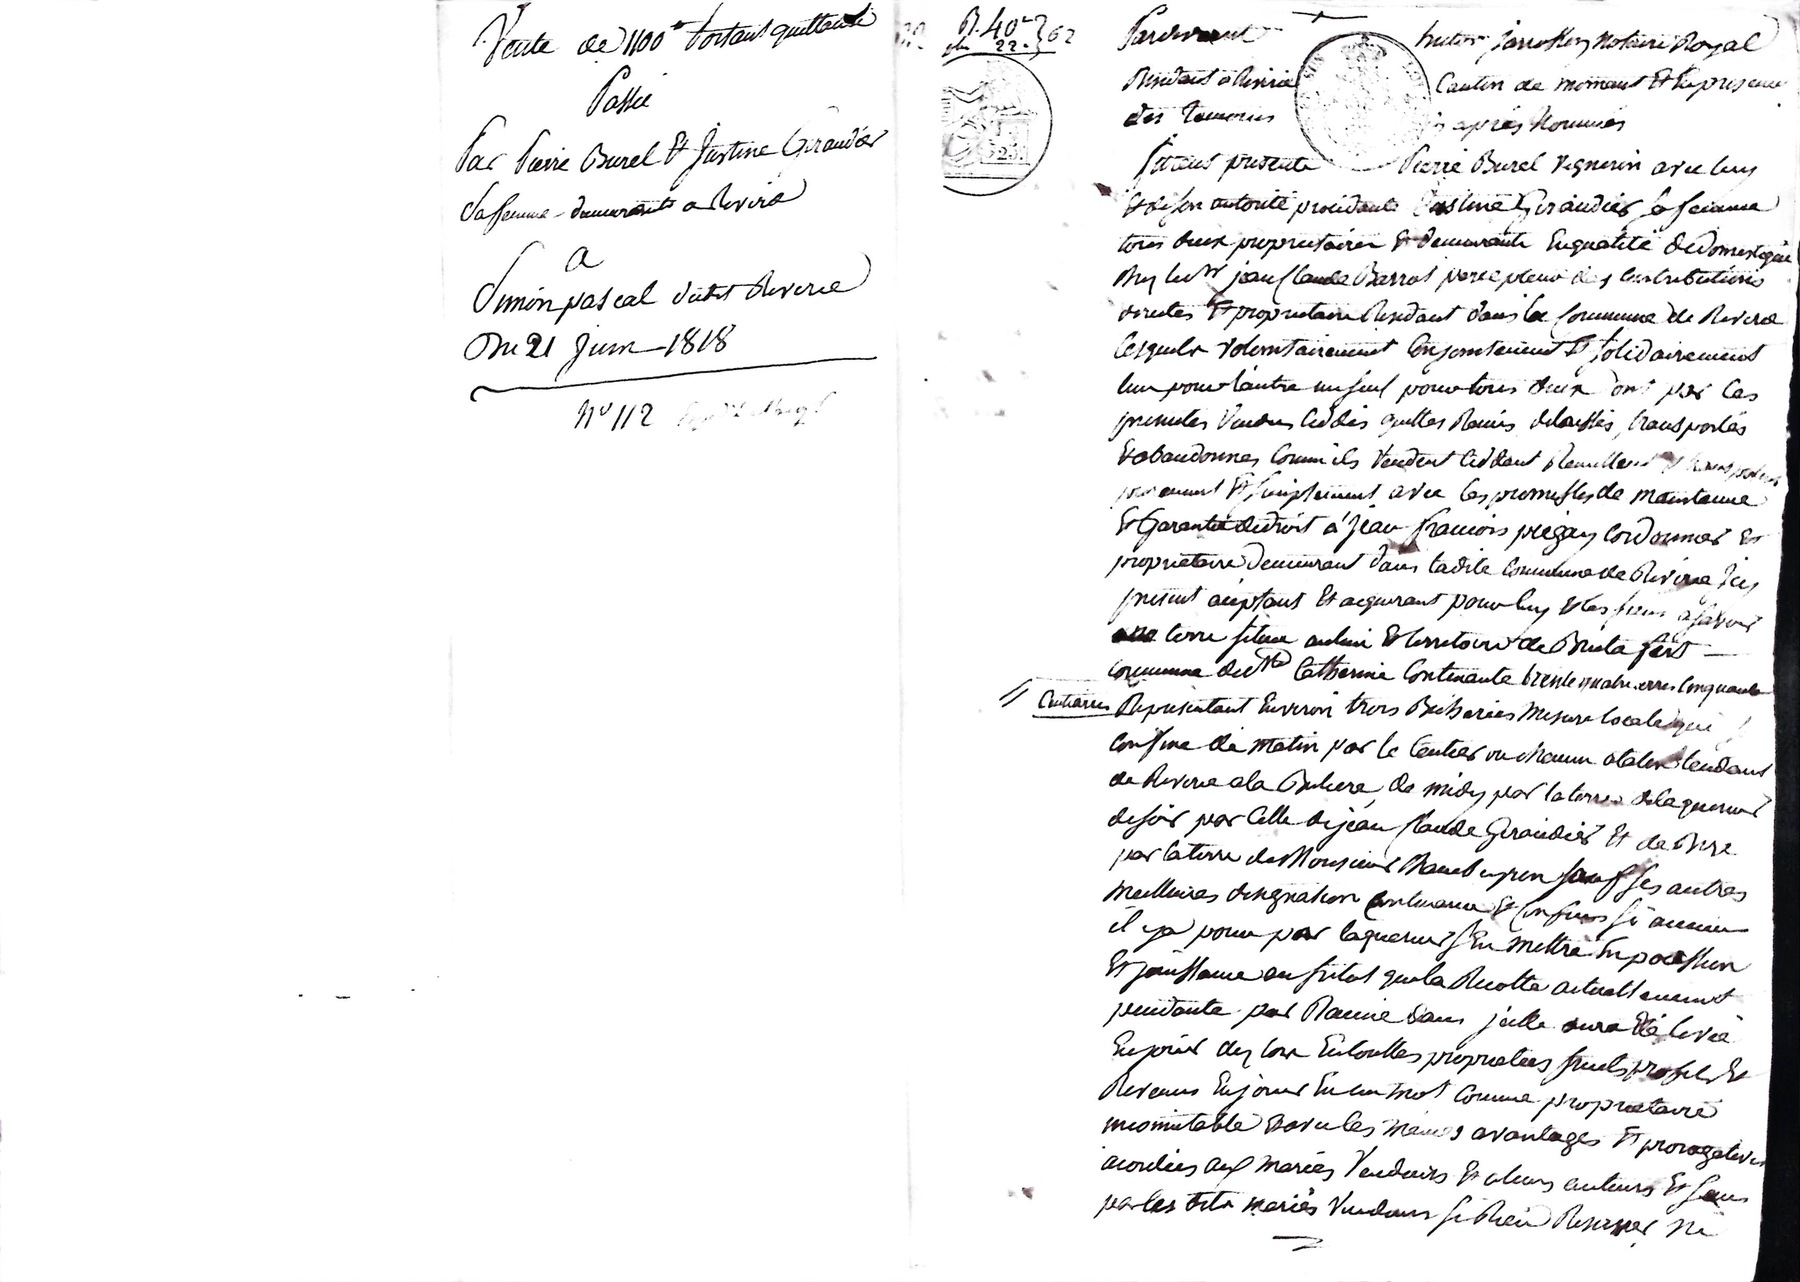 Vente de 1100 tt portant quittance
Passée
Par Pierre Burel Et Justine Giraudier
Sa femme demeurants a Riverie
a
Simon pascal dudit Riverie
Du 21 Juin 1818
N° 112
R. 40
22
62
Pardevant notaire Royal
Résidant a Riverie Canton de mornant Et En presence
des temoins cy après Nommés
furent presents Pierre Burel vigneron avec luy
Et de son autorité procédante Justine Giraudier sa femme
tous deux proprietaires Et demeurants En qualité de domestique
chez le Sr jean Claude Barrot percepteur des Contributions
directes Et proprietaire Résidant dans la Commune de Riverie
Lesquels volontairement Conjointement Et solidairement
l'un pour l'autre un seul pour tous deux ont par Ces
presentes Vendus Cédés quittés Remis delaissés, transportés
Et abandonnés Comm'ils Vendent Cèddent Remettent Et transportent
purement Et simplement avec Les promesses de maintenue
Et Garantie de droit à Jean francois piegay Cordonnier Et
proprietaire Demeurant dans ladite Commune de Riverie Icy
present aceptant Et acquerant pour luy Et les siens a savoir
une terre située au lieu Et territoire de
commune de Ste Catherine Contenante trente quatre ares Cinquante
Centiares Représentant Environ trois Bicherées Mesure locale qui
confine de matin par le Sentier ou chemin tendant
de Riverie a la de midy par la terre de laquereur
de soir par Celle de jean Claude Giraudier Et de Bize
par la terre de Monsieur sauf ses autres
meilleures designation Contenance Et Confins si aucun
il y a pour par laquereur s'En mettre En possession
Et jouissance aussitot que la Recolte actuellement
pendante par Racine dans jcelle aura Eté levée
En jouir dez lors En touttes proprietées fruits profits Et
Revenus En jouir En un mot Comme proprietaire
incomutable Et avec les mêmes avantages Et prerogatives
acordées aux mariés Vendeurs Et a leurs auteurs Et sans
par les dits mariés Vendeurs si Rien Réserver, Ni